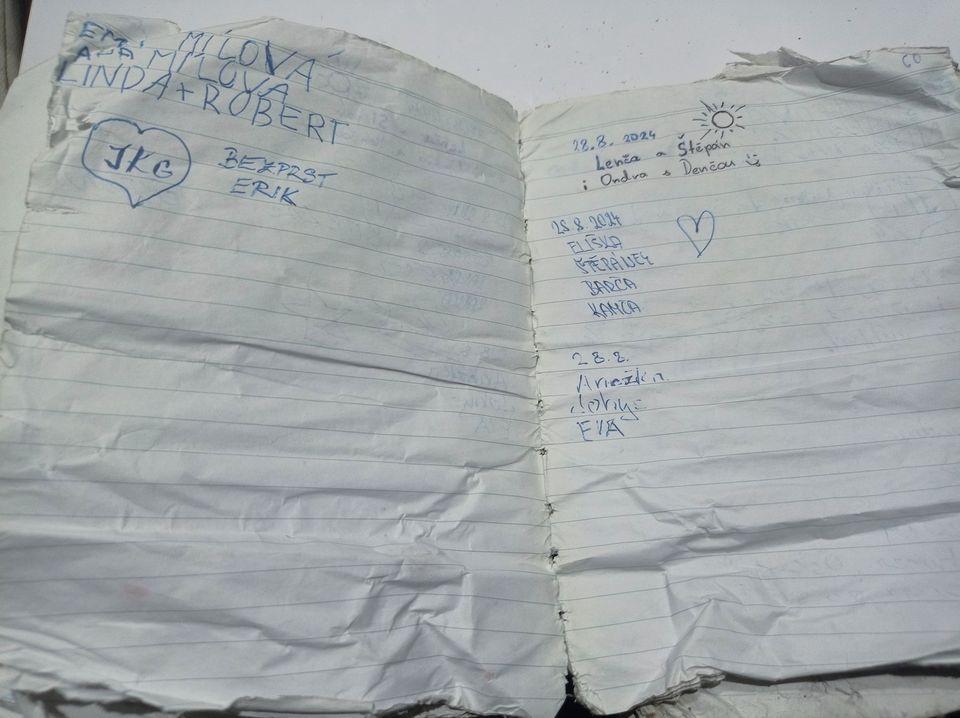 MÍLOVÁ
MÍLOVÁ
LINDA + ROBERT
JKG
ERIK
CO
28.8. 2024
Lenča a Štěpán
i Ondra s Denčou
28.8.2024
ELIŠKA
ŠTĚPÁNEK
BARČA
KAMČA
28.8.
EVA